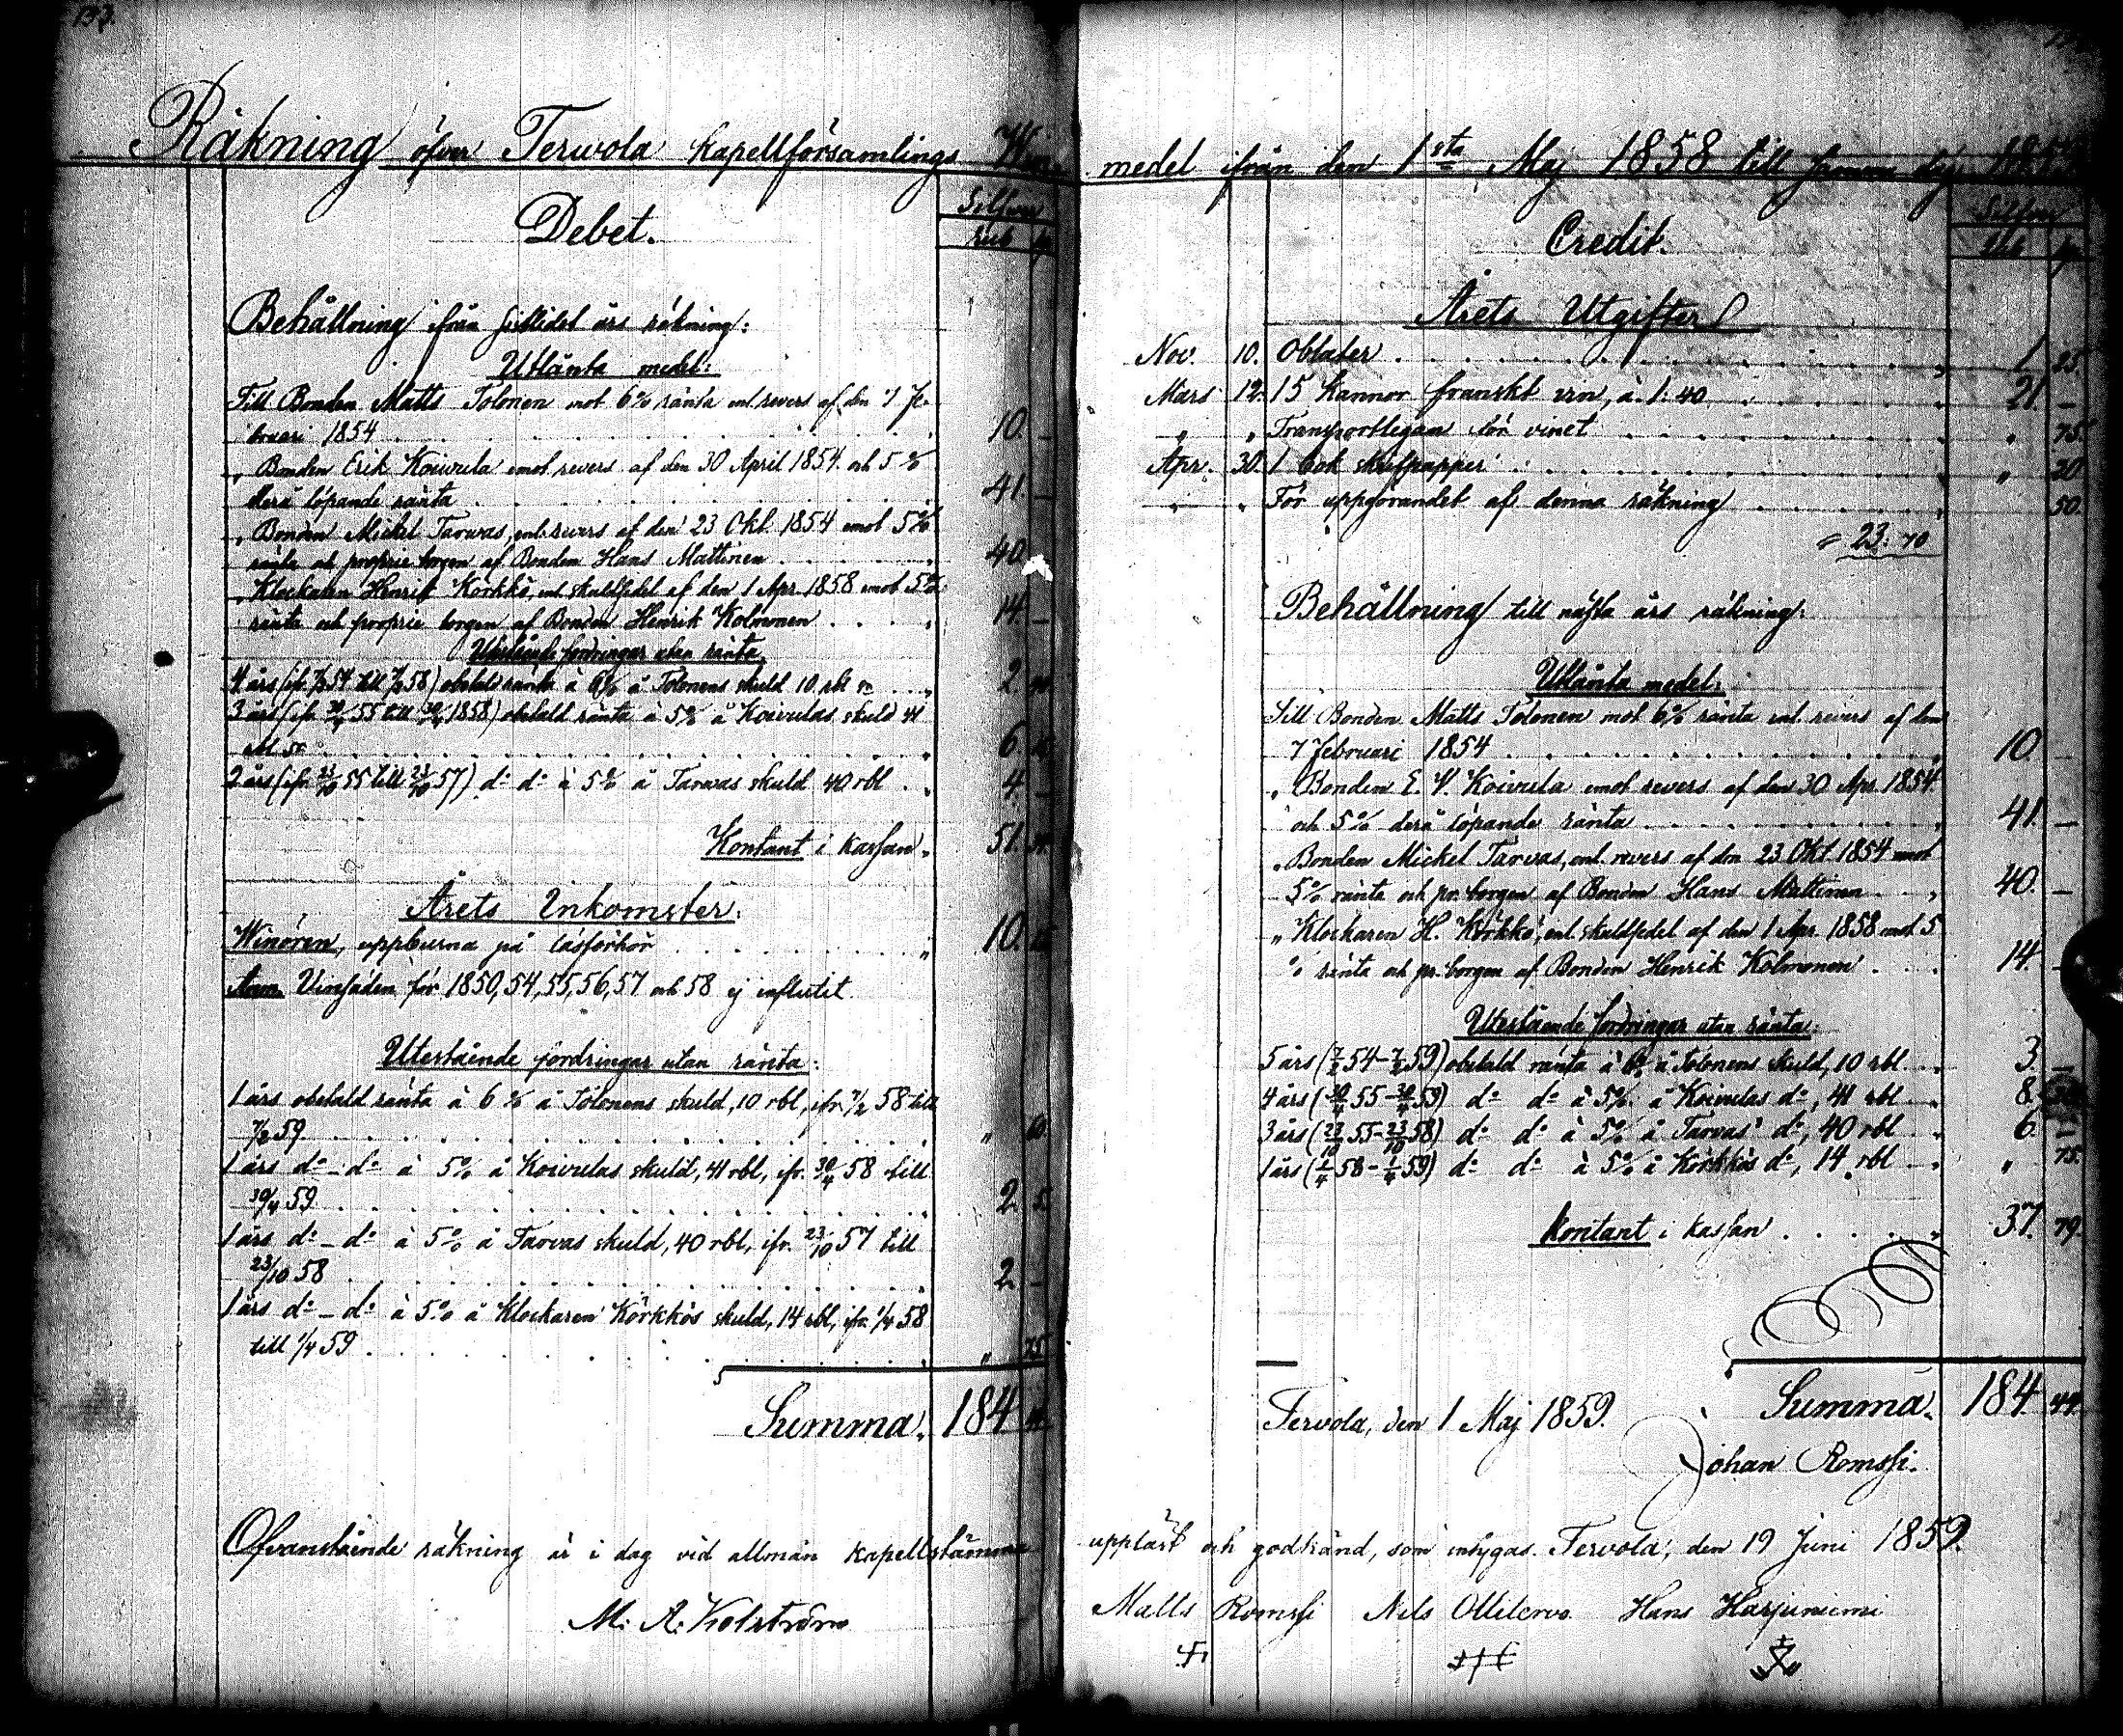 193.
Räkning öfver Terwola kapellförsamlings Win-
Silfver
Debet. Rub k.
Behållning ifrån sistlidet års räkning:
Utlånta medel:
Till Bonden Matts Tolonen mot 6% ränta enl. revers af den 7 Fe-
bruari 1854 . . . 10. —
„ Bonden Erik Koivula emot revers af den 30 April 1854 och 5 %
derå löpande ränta . . . 41. —
„ Bonden Mickel Tarwas, enl. revers af den 23 Okt. 1854 emot 5%
ränta och proprie borgen af Bonden Hans Mattinen . . . 40.
„ Klockaren Henrik Körkkö, enl. skuldsedel af den 1 Apr. 1858 emot 5%
ränta och proprie borgen af Bonden Henrik Kolmonen . . . 14. —
Utestående fordringar utan ränta
4 års (ifr. 7/2 54 till 7/2 58) obetald ränta à 6% å Tolonens skuld 10 rbl sr . . 2.
3 års (ifr. 30/4 55 till 30/4 1858) obetald ränta à 5% å Koivulas skuld 41
rbl sr . . . 6.
2 års (ifr. 23/10 55 till 23/10 57) d:o d:o à 5% å Tarwas skuld 40 rbl . 4. —
Kontant i kassan „ 51.
Årets Inkomster:
Winören, uppburna på läsförhör . . . „ 10.
Anm. Vinsäden för 1850, 54, 55, 56, 57 och 58 ej influtit.
Utestående fordringar utan ränta:
1 års obetald ränta à 6 % å Tolonens skuld, 10 rbl, ifr. 7/2 58 till
7/2 59 . . . „ 60.
1 års d:o – d:o à 5% å Koivulas skuld, 41 rbl, ifr. 30/4 58 till
30/4 59 . . . 2. 5.
1 års d:o – d:o à 5% å Tarvas skuld, 40 rbl, ifr. 23/10 57 till
23/10 58 . . . 2. —
1 års d:o – d:o à 5% å Klockaren Körkkös skuld, 14 rbl, ifr. 1/4 58
till 1/4 59 . . . „ 75.
Summa „ 184
Ofvanstående räkning är i dag vid allmän kapellstämma
M. A. Kolström
medel ifrån den 1sta Maj 1858 till samma dag
Silfver
Credit. Rub k.
Årets Utgifter
Nov. 10. Oblater . . . „ 1. 25.
Mars 12. 15 kannor franskt vin, à 1:40 . . . „ 21. —
„ „ Transportlegan för vinet . . . „ 75.
Apr. 30. 1 bok skrifpapper . . . „ 20
„ „ För uppgörandet af denna räkning . . . 50.
= 23:70
Behållning till nästa års räkning:
Utlånta medel:
Till Bonden Matts Tolonen mot 6% ränta enl. revers af den
7 februari 1854 . . . 10. —
„ Bonden E. Koivula emot revers af den 30 Apr. 1854.
och 5% derå löpande ränta . . . 41. —
„ Bonden Mickel Tarvas, enl. revers af den 23 Okt. 1854 emot
5% ränta och pr. borgen af Bonden Hans Mattinen . . „ 40. —
„ Klockaren H. Körkkö, enl. skuldsedel af den 1 Apr. 1858 mot 5
% ränta och pr. borgen af Bonden Henrik Kolmonen . . . 14.
Utestående fordringar utan ränta:
5 års (7/2 54 – 7/2 59) obetald ränta à 6% å Tolonens skuld, 10 rbl . . 3. —
4 års (30/4 55 – 30/4 59) d:o d:o à 5% å Koivulas d:o, 41 rbl „ 8.
3 års (23/10 55 – 23/10 58) d:o d:o à 5% å Tarvas' d:o, 40 rbl „ 6. —
1 års (1/4 58 – 1/4 59) d:o d:o à 5% å Körkkös d:o, 14 rbl „ „ 75.
Kontant i kassan . . . „ 37. 79.
Summa „ 184. 44.
Tervola, den 1 Maj 1859.
Johan Romssi.
uppläst och godkänd, som intygas. Tervola, den 19 Juni 1859.
Matts Romssi Nils Ollilervo Hans Harjuniemi